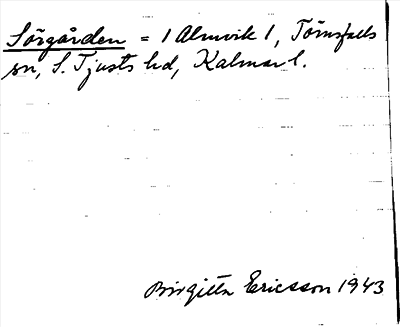 Sörgården = 1 Almvik 1, Törnsfalls
sn, S. Tjusts hd, Kalmar l.
Birgitta Ericsson 1943